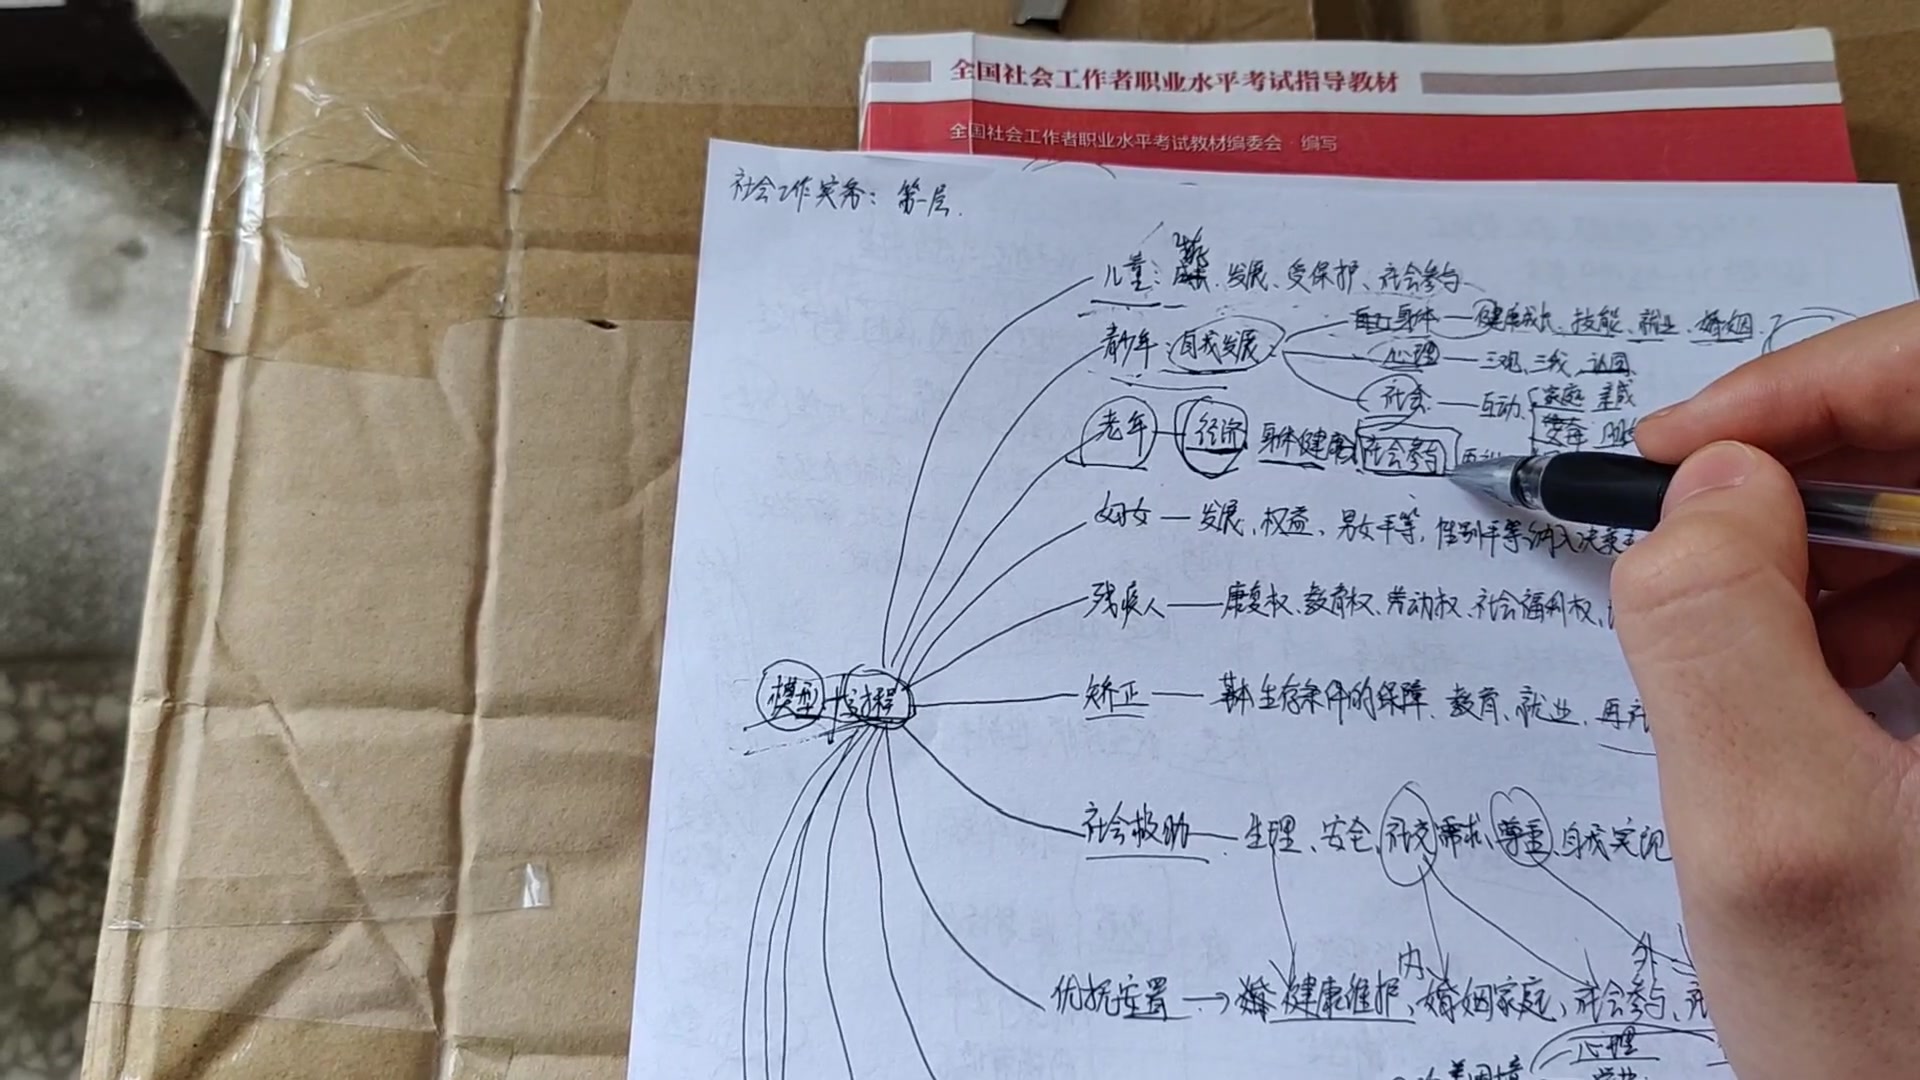 全国社会工作者职业水平考试指导教材
全国社会工作者职业水平考试教材编委会·编写
社会工作实务：第一层.
儿童：发展、受保护、社会参与
青少年：自我发展
身体—健康成长、技能、就业、婚姻
心理—三观、三我、认同
社会—互动、家庭
老年—经济 身体健康 社会参与
妇女—发展、权益、男女平等，性别平等纳入决策
残疾人—康复权、教育权、劳动权、社会福利权、
模型+过程
矫正—基本生存条件的保障、教育、就业、再
社会救助—生理、安全、社交需求、尊重、自我实现
内
外
优抚安置→健康维护、婚姻家庭，社会参与、
心理